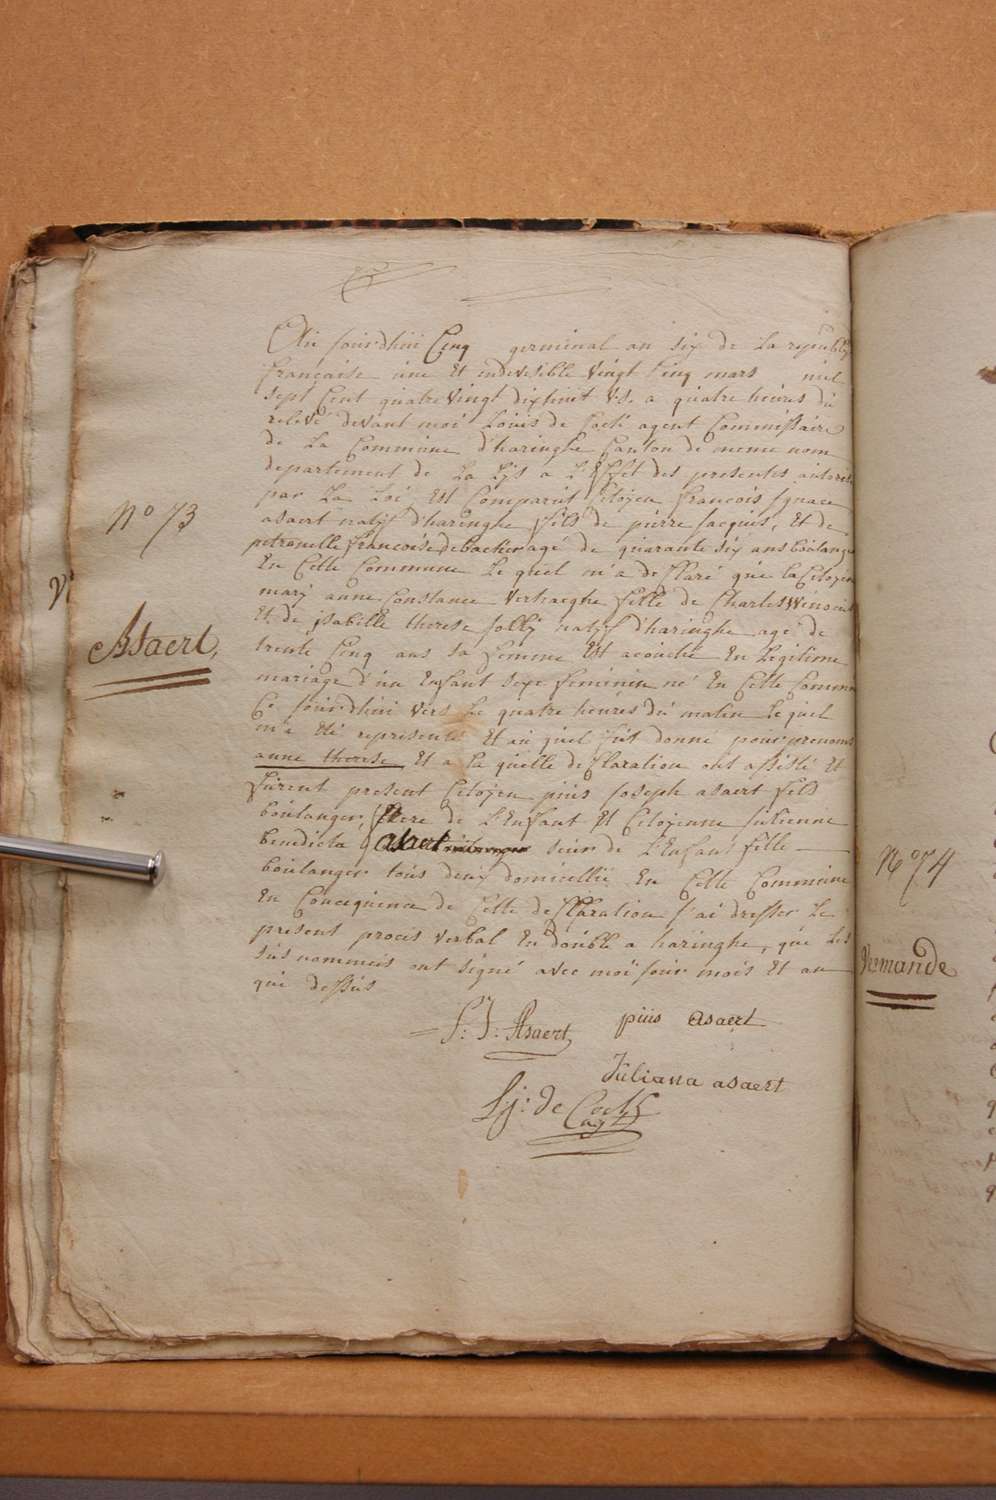 Au Jourdhui Cinq germinal an six de La republiq
francaise une Et indevisible vingt Cinq mars mil
sept Cent quatre vingt dixhuit v.s. a quatre heures du
relevé devant moi Louis de Cock agent Commissaire
de La Commune d'haringhe Canton de meme nom
departement de La Lijs a L'Effet des presentes autorisé
par La Loi Est Comparut Citoyen francois Ignace
asaert natif d'haringhe fils de pierre Jacques, Et de
petronelle francoise debacker agé de quarante six ans boulanger
En Cette Commune Le quel m'a deClaré que la Citoyen
marij anne Constance verhaeghe fille de Charles Winoc
Et de isabelle therese Jollij natif d'haringhe agé de
trente Cinq ans sa femme Est acouché En Legitime
mariage d'un Enfant sexe feminin né En Cette Commu
Ce Jourdhui vers Le quatre heures du matin Le quel
m'a Eté representé Et au quel fut donné pour prenoms
anne therese Et a la quelle deClaration ont assisté Et
furent present Citoyen pius Joseph asaert fils
boulanger, frere de L'Enfant Et Citoyenne Julienne
benedicta asaert seur de L'Enfant fille
boulanger tous deux domicellié En Cette Commune
En Concequence de Cette deClaration J'ai dresser Le
present procis verbal En double a haringhe, que Les
sus nommeis ont signé avec moi Jour mois Et an
qui dessus
F: J: Asaert pius asaert
Juliana asaert
Lj: de Cock
agt
No 73
Asaert,
No 74